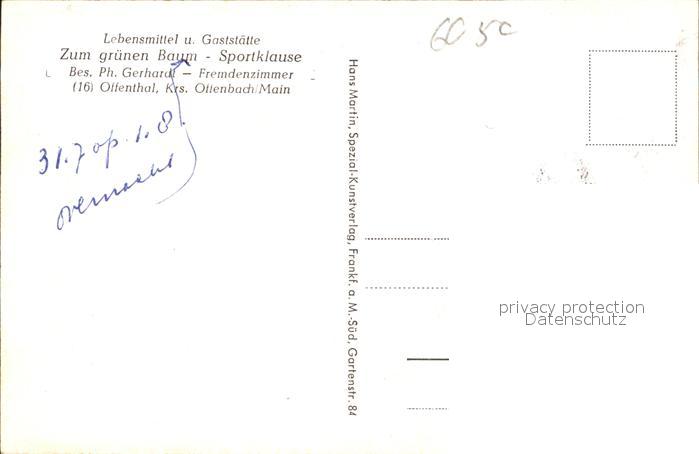 Lebensmittel u. Gaststätte
Zum grünen Baum - Sportklause
Bes. Ph. Gerhardt — Fremdenzimmer
(16) Offenthal, Krs. Offenbach/Main
31.7 op. 1.8.
Hans Martin, Spezial-Kunstverlag, Frankf. a. M.-Süd, Gartenstr. 84
privacy protection
Datenschutz